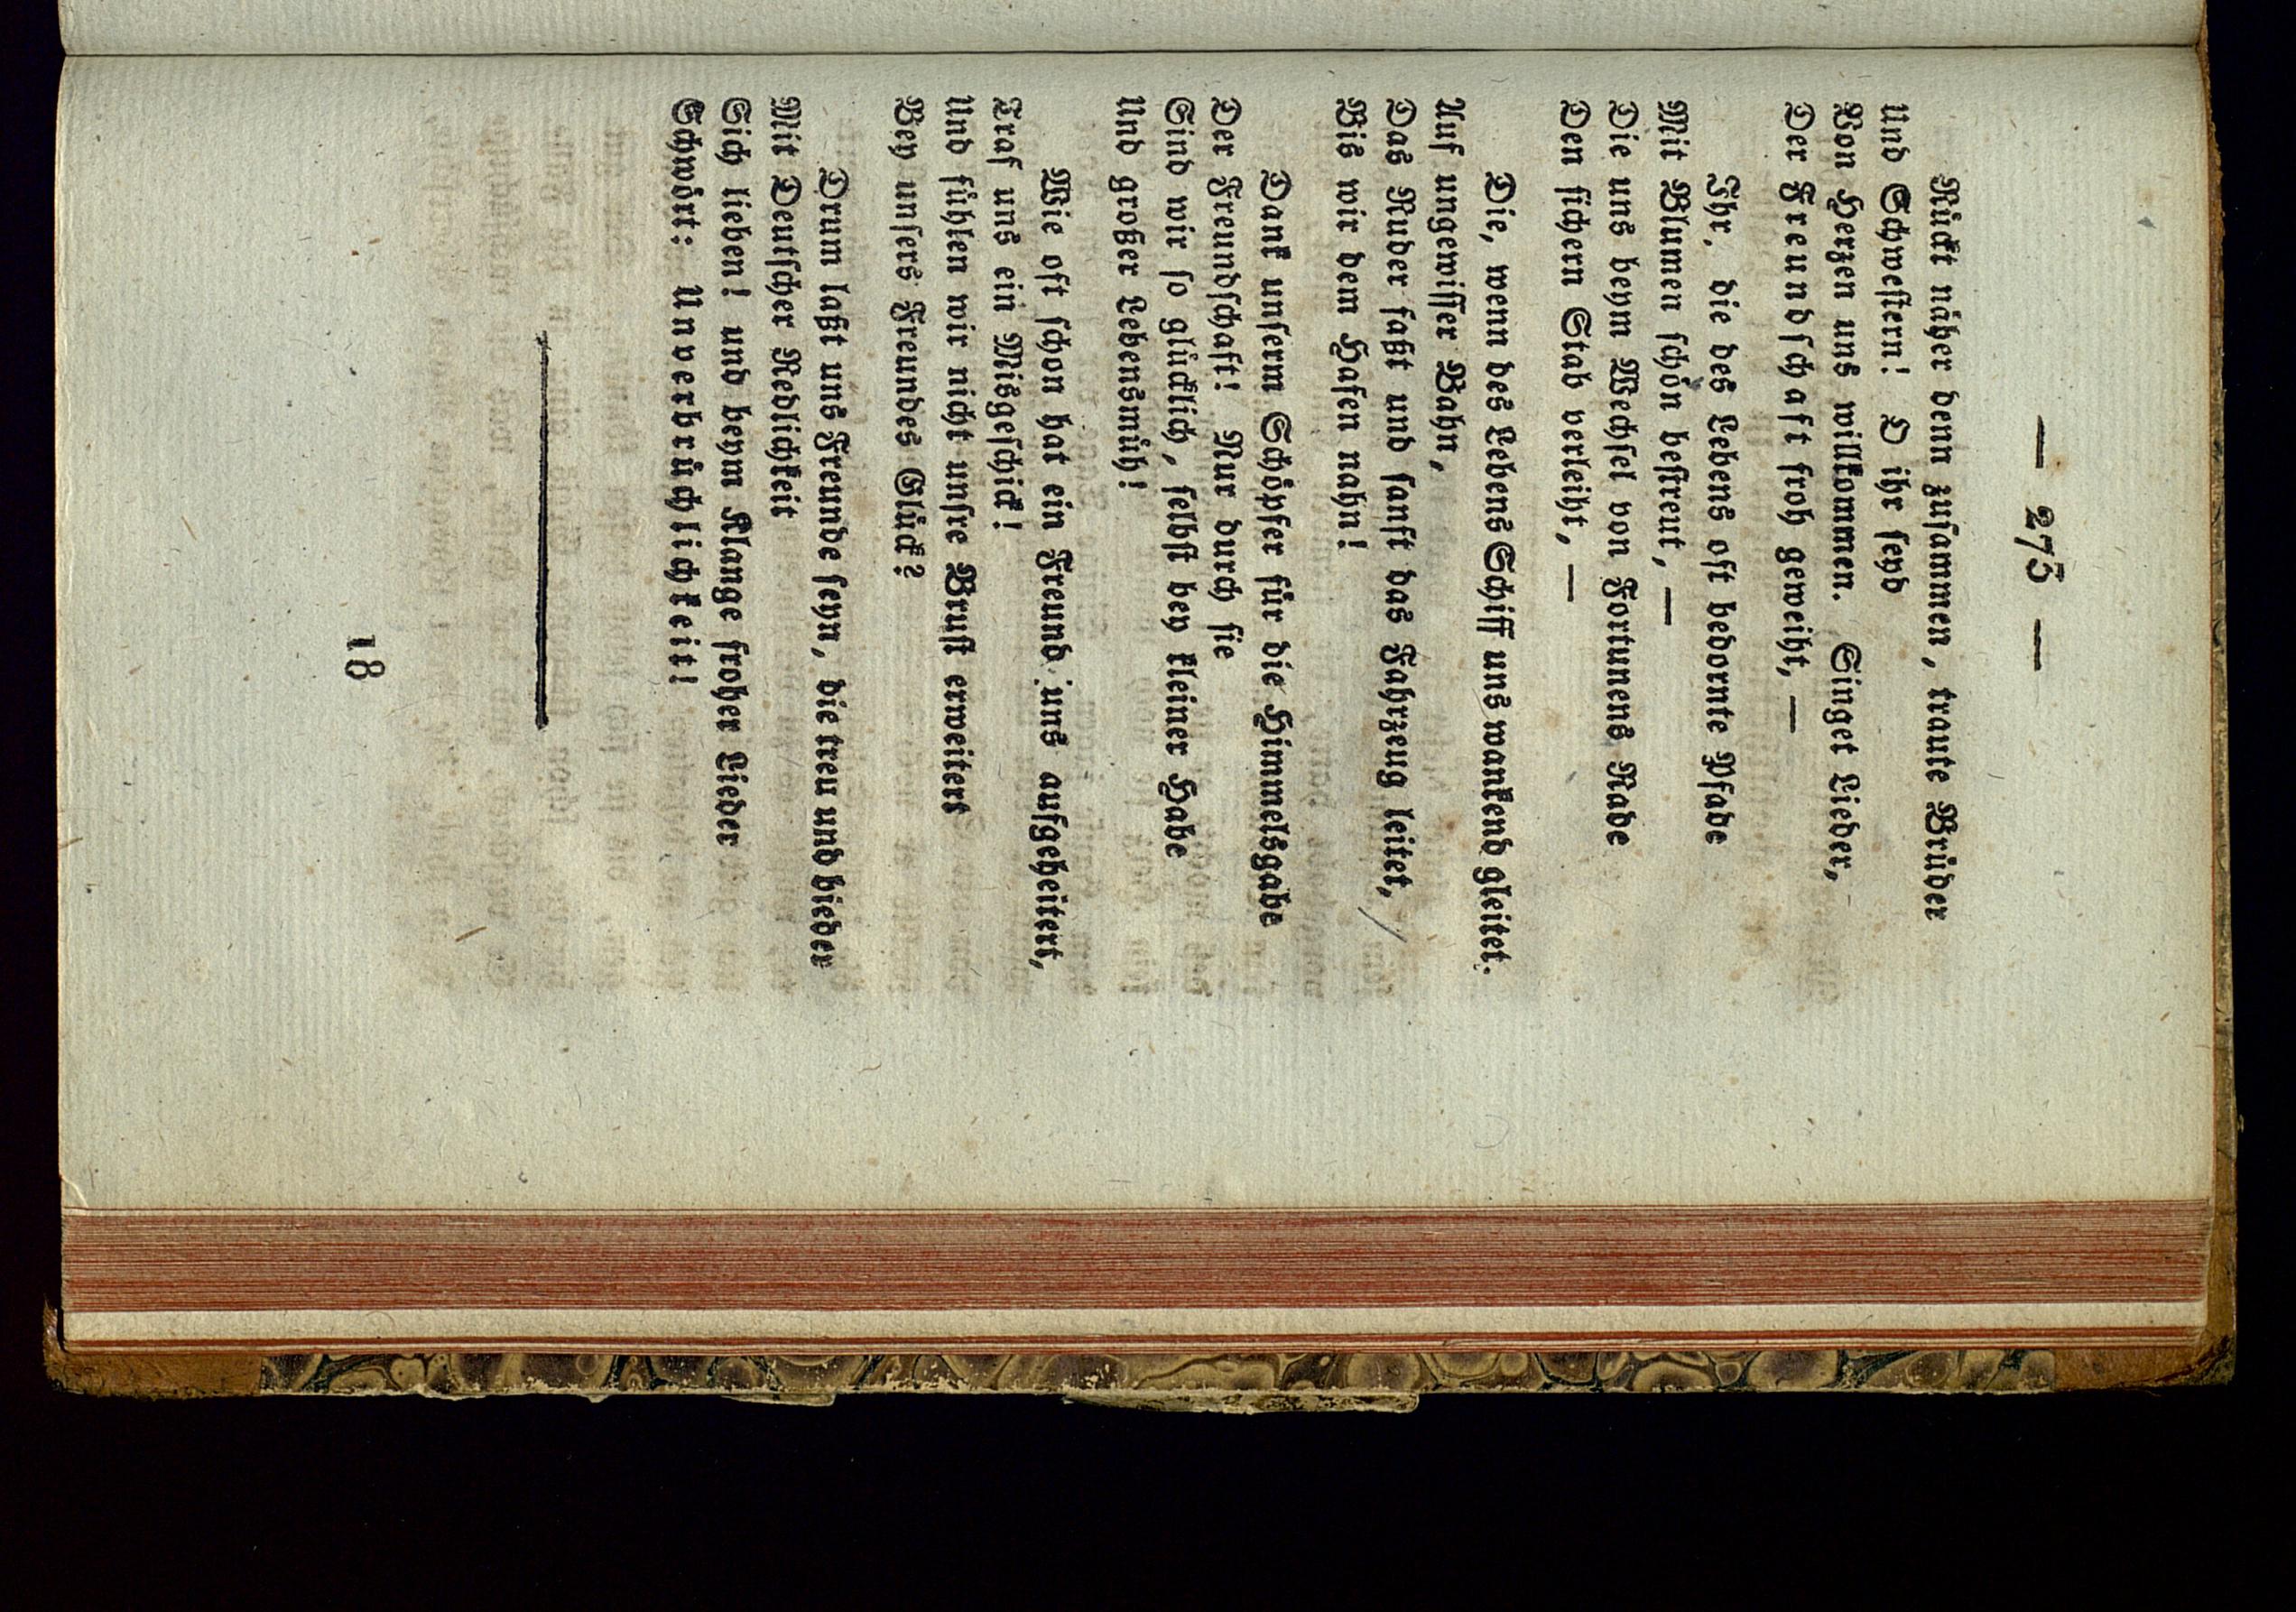 — 273 —
Rückt näher denn zusammen, traute Brüder
Und Schwestern! O ihr seyd
Von Herzen uns willkommen. Singet Lieder,
Der Freundschaft froh geweiht, —
Ihr, die des Lebens oft bedornte Pfade
Mit Blumen schön bestreut, —
Die uns beym Wechsel von Fortunens Rade
Den sichern Stab verleiht, —
Die, wenn des Lebens Schiff uns wankend gleitet.
Auf ungewisser Bahn,
Das Ruder faßt und sanft das Fahrzeug leitet,
Bis wir dem Hafen nahn!
Dank unserm Schöpfer für die Himmelsgabe
Der Freundschaft! Nur durch sie
Sind wir so glücklich, selbst bey kleiner Habe
Und großer Lebensmüh!
Wie oft schon hat ein Freund uns aufgeheitert,
Traf uns ein Misgeschick!
Und fühlen wir nicht unsre Brust erweitert
Bey unsers Freundes Glück?
Drum laßt uns Freunde seyn, die treu und bieder
Mit Deutscher Redlichkeit
Sich lieben! und beym Klange froher Lieder
Schwört: Unverbrüchlichkeit!
18